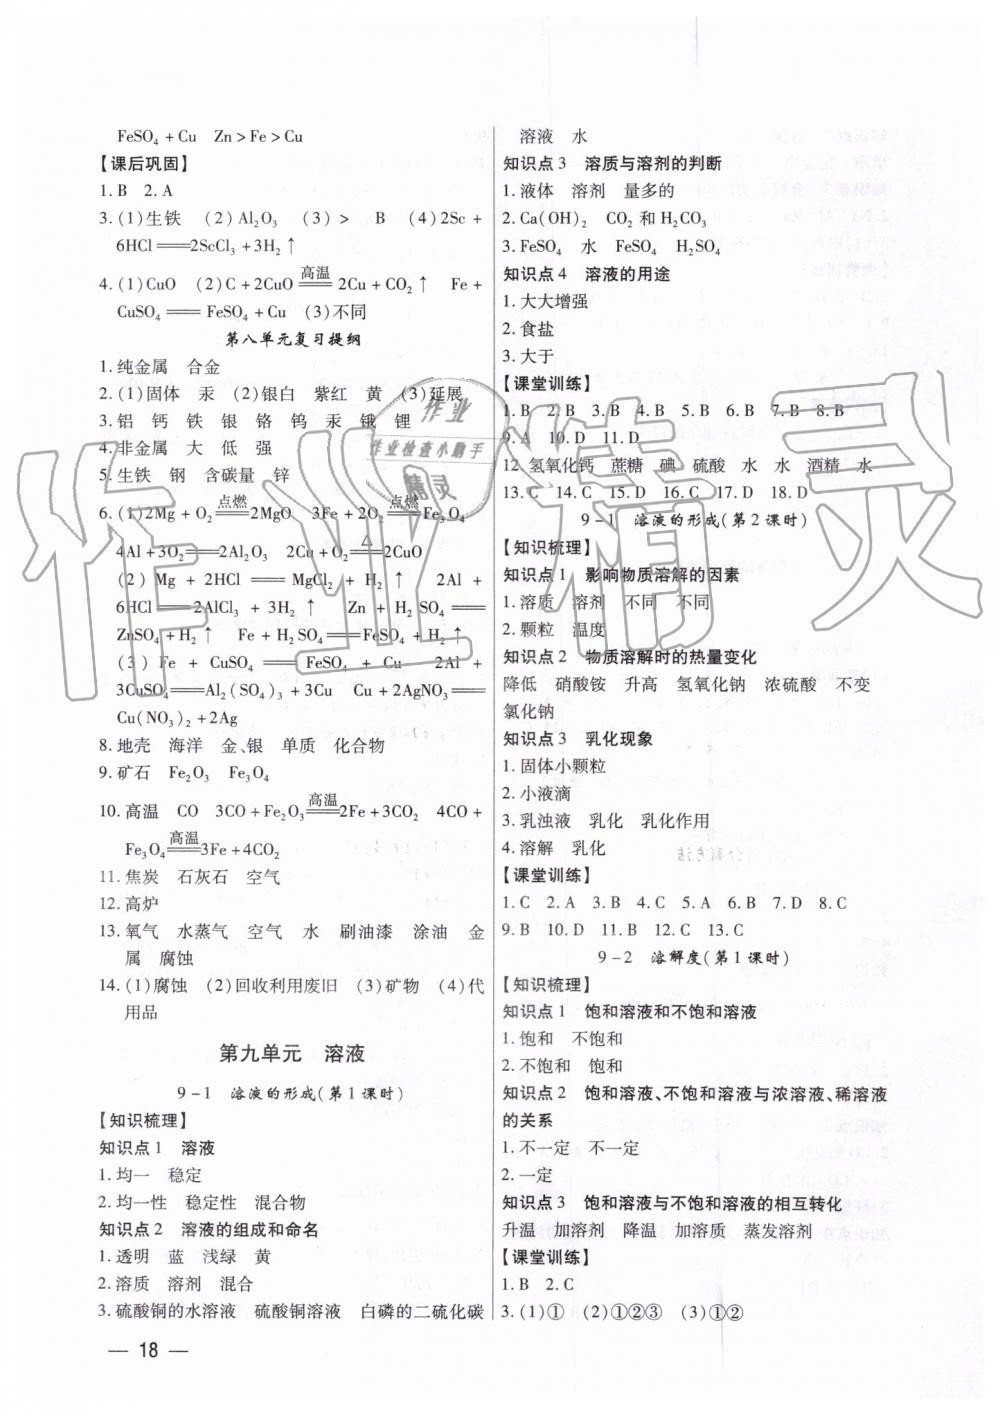 FeSO₄+Cu Zn>Fe>Cu
【课后巩固】
1. B 2. A
3. (1)生铁 (2)Al₂O₃ (3)> B (4)2Sc+
6HCl══2ScCl₃+3H₂↑
4. (1)CuO (2)C+2CuO高温══2Cu+CO₂↑ Fe+
CuSO₄══FeSO₄+Cu (3)不同
第八单元复习提纲
1. 纯金属 合金
2. (1)固体 汞 (2)银白 紫红 黄 (3)延展
3. 铝 钙 铁 银 铬 钨 汞 锇 锂
4. 非金属 大 低 强
5. 生铁 钢 含碳量 锌
6. (1)2Mg+O₂点燃══2MgO 3Fe+2O₂点燃══Fe₃O₄
4Al+3O₂══2Al₂O₃ 2Cu+O₂△══2CuO
(2) Mg+2HCl══MgCl₂+H₂↑ 2Al+
6HCl══2AlCl₃+3H₂↑ Zn+H₂SO₄══
ZnSO₄+H₂↑ Fe+H₂SO₄══FeSO₄+H₂↑
(3) Fe+CuSO₄══FeSO₄+Cu 2Al+
3CuSO₄══Al₂(SO₄)₃+3Cu Cu+2AgNO₃══
Cu(NO₃)₂+2Ag
8. 地壳 海洋 金、银 单质 化合物
9. 矿石 Fe₂O₃ Fe₃O₄
10. 高温 CO 3CO+Fe₂O₃高温══2Fe+3CO₂ 4CO+
Fe₃O₄高温══3Fe+4CO₂
11. 焦炭 石灰石 空气
12. 高炉
13. 氧气 水蒸气 空气 水 刷油漆 涂油 金
属 腐蚀
14. (1)腐蚀 (2)回收利用废旧 (3)矿物 (4)代
用品
第九单元 溶液
9-1 溶液的形成(第1课时)
【知识梳理】
知识点1 溶液
1. 均一 稳定
2. 均一性 稳定性 混合物
知识点2 溶液的组成和命名
1. 透明 蓝 浅绿 黄
2. 溶质 溶剂 混合
3. 硫酸铜的水溶液 硫酸铜溶液 白磷的二硫化碳
— 18 —
溶液 水
知识点3 溶质与溶剂的判断
1. 液体 溶剂 量多的
2. Ca(OH)₂ CO₂和H₂CO₃
3. FeSO₄ 水 FeSO₄ H₂SO₄
知识点4 溶液的用途
1. 大大增强
2. 食盐
3. 大于
【课堂训练】
1. B 2. B 3. B 4. B 5. B 6. D 7. B 8. B
9. A 10. D 11. D
12. 氢氧化钙 蔗糖 碘 硫酸 水 水 酒精 水
13. C 14. C 15. D 16. C 17. D 18. D
9-1 溶液的形成(第2课时)
【知识梳理】
知识点1 影响物质溶解的因素
1. 溶质 溶剂 不同 不同
2. 颗粒 温度
知识点2 物质溶解时的热量变化
降低 硝酸铵 升高 氢氧化钠 浓硫酸 不变
氯化钠
知识点3 乳化现象
1. 固体小颗粒
2. 小液滴
3. 乳浊液 乳化 乳化作用
4. 溶解 乳化
【课堂训练】
1. C 2. A 3. B 4. C 5. A 6. B 7. D 8. C
9. B 10. D 11. B 12. C 13. C
9-2 溶解度(第1课时)
【知识梳理】
知识点1 饱和溶液和不饱和溶液
1. 饱和 不饱和
2. 不饱和 饱和
知识点2 饱和溶液、不饱和溶液与浓溶液、稀溶液
的关系
1. 不一定 不一定
2. 一定
知识点3 饱和溶液与不饱和溶液的相互转化
升温 加溶剂 降温 加溶质 蒸发溶剂
【课堂训练】
1. B 2. C
3. (1)① (2)①②③ (3)①②
作业
作业检查小助手
精灵
作业精灵